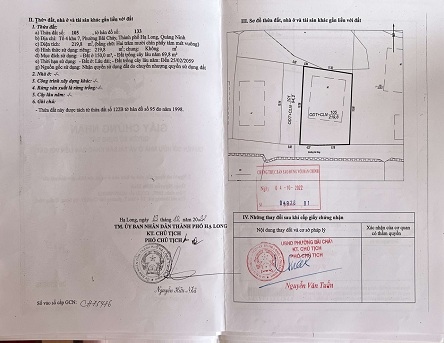 II. Thửa đất, nhà ở và tài sản khác gắn liền với đất
1. Thửa đất:
a) Thửa đất số: 105 , tờ bản đồ số: 133
b) Địa chỉ: Tổ 4 khu 7, Phường Bãi Cháy, Thành phố Hạ Long, Quảng Ninh
c) Diện tích: 219,8 m², (bằng chữ: Hai trăm mười chín phẩy tám mét vuông)
d) Hình thức sử dụng: riêng: 219,8 m², chung: Không m²
đ) Mục đích sử dụng: - Đất ở 150,0 m²; - Đất trồng cây lâu năm 69,8 m²
e) Thời hạn sử dụng: - Đất ở: Lâu dài; - Đất trồng cây lâu năm: Đến 25/02/2059
g) Nguồn gốc sử dụng: Nhận chuyển nhượng đất do chuyển nhượng quyền sử dụng đất
2. Nhà ở: -/-
3. Công trình xây dựng khác: -/-
4. Rừng sản xuất là rừng trồng: -/-
5. Cây lâu năm: -/-
6. Ghi chú:
- Thửa đất này được tách từ thửa đất số 122B tờ bản đồ số 95 đo năm 1998.
Hạ Long, ngày
TM. ỦY BAN NHÂN DÂN THÀNH PHỐ HẠ LONG
KT. CHỦ TỊCH
PHÓ CHỦ TỊCH
Số vào sổ cấp GCN:
III. Sơ đồ thửa đất, nhà ở và tài sản khác gắn liền với đất
ODT+CLN
105
219,8
ODT+CLN
04-10-2022
IV. Những thay đổi sau khi cấp giấy chứng nhận
Nội dung thay đổi và cơ sở pháp lý
Xác nhận của cơ quan
có thẩm quyền
UBND PHƯỜNG BÃI CHÁY
KT. CHỦ TỊCH
PHÓ CHỦ TỊCH
Nguyễn Văn Tuấn